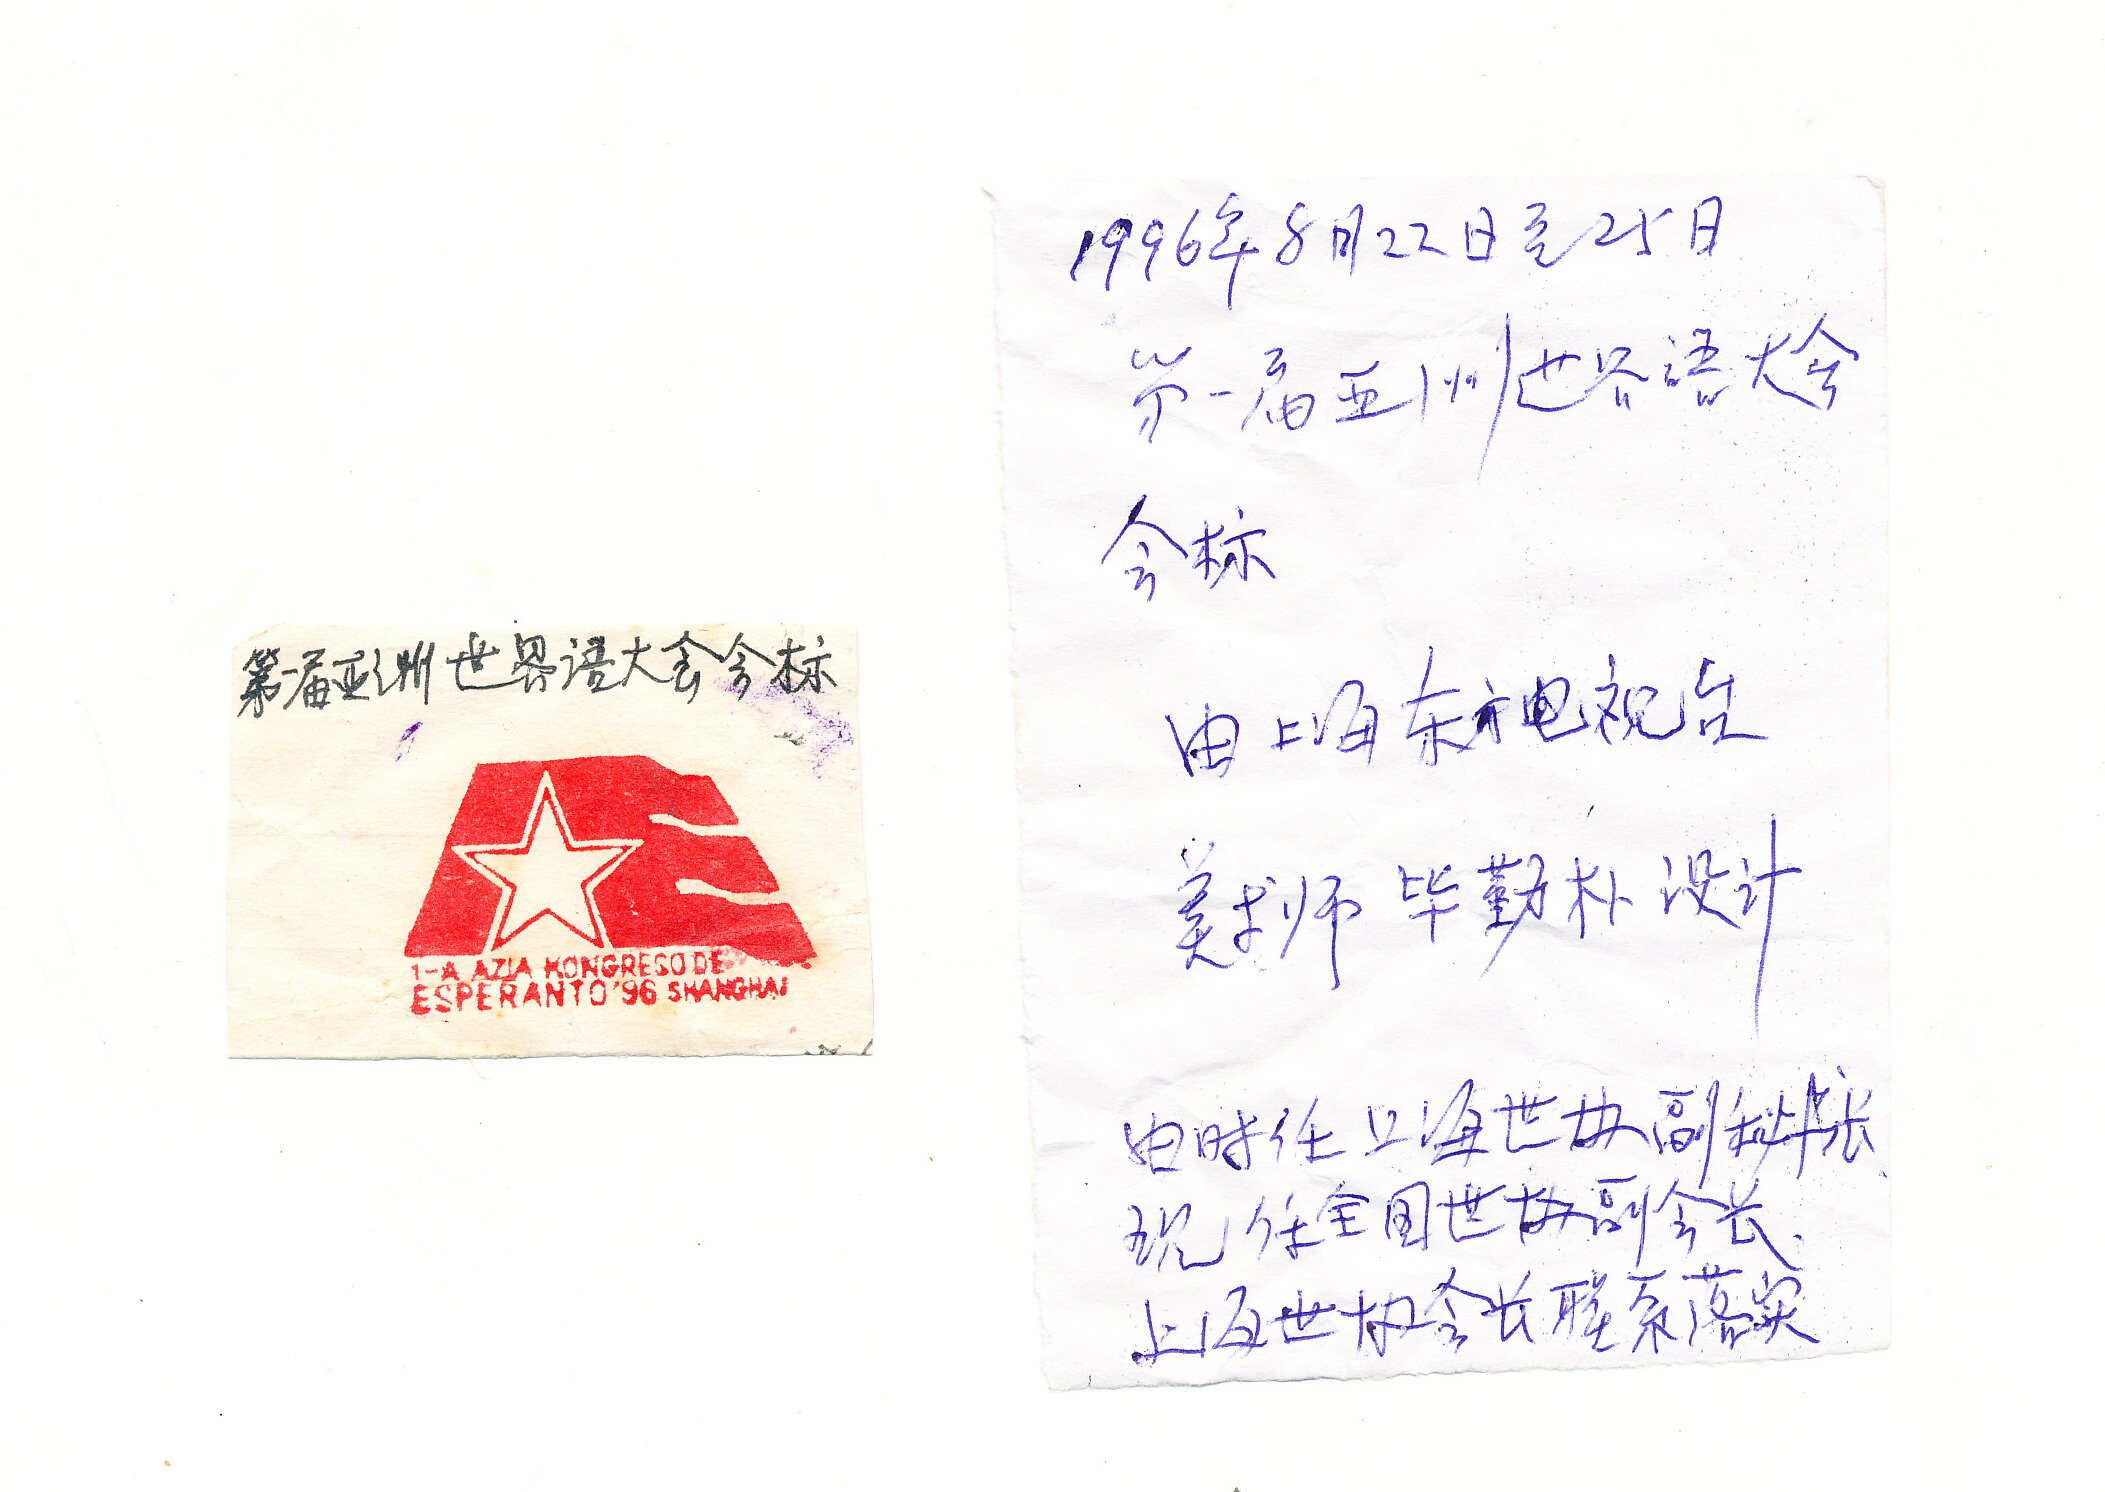 第一届亚洲世界语大会会标
1-A AZIA KONGRESO DE
ESPERANTO '96 SHANGHAI
1996年8月22日至25日
第一届亚洲世界语大会
会标
由上海东方电视台
美术师 毕勤朴 设计
由时任上海世协副秘书长
现任全国世协副会长.
上海世协会长联系落实